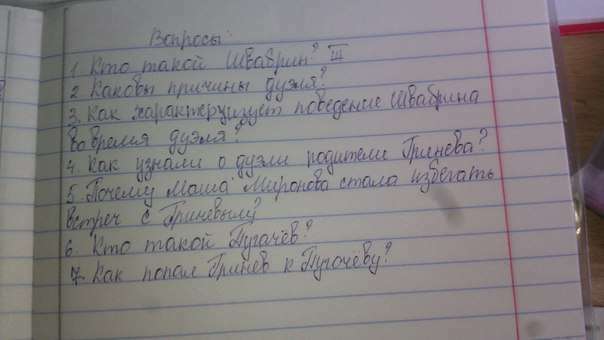 Вопросы:
1. Кто такой Швабрин? III
2. Каковы причины дуэли?
3. Как характеризует поведение Швабрина
во время дуэли?
4. Как узнали о дуэли родители Гринева?
5. Почему Маша Миронова стала избегать
встреч с Гриневым?
6. Кто такой Пугачёв?
7. Как попал Гринев к Пугачёву?